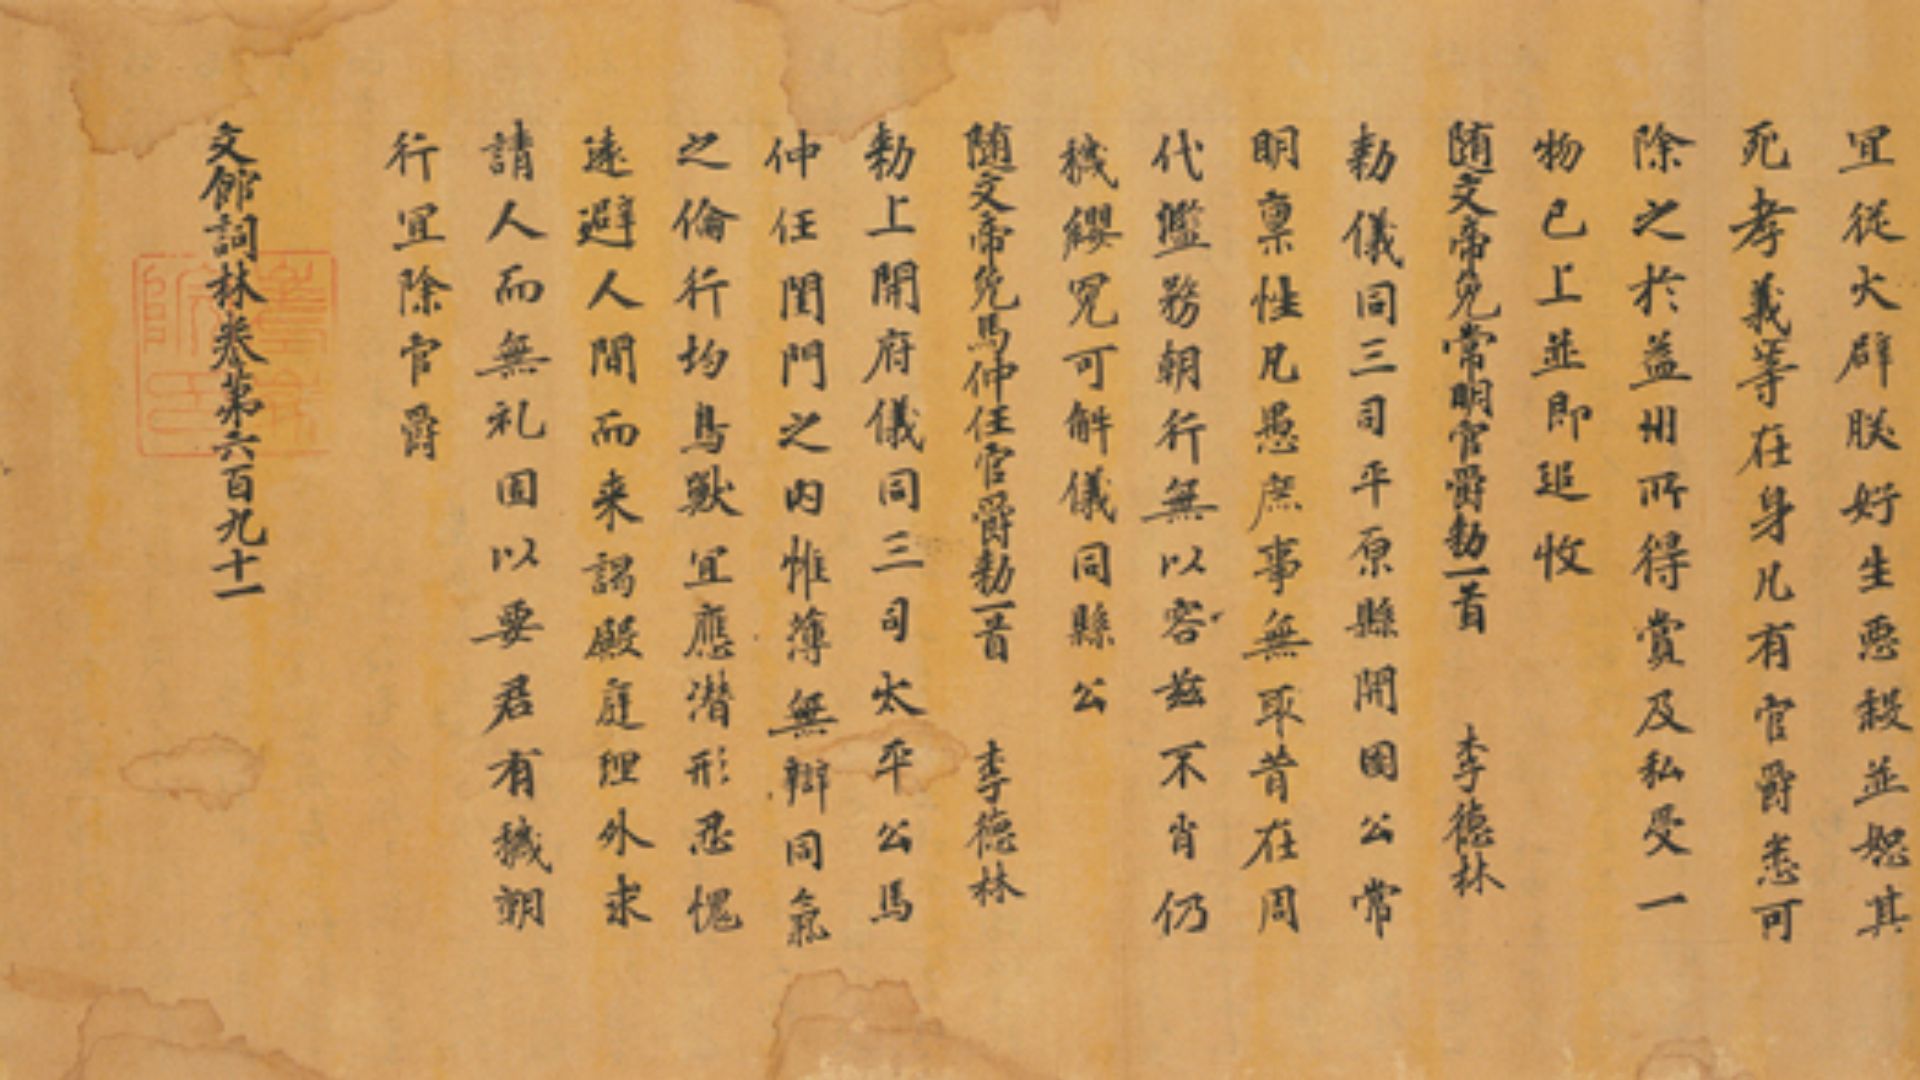 宜從大辟朕好生惡殺並恕其
死孝義等在身凡有官爵悉可
除之於益州所得賞及私受一
物已上並即追收
隨文帝免常明官爵勅一首 李德林
勅儀同三司平原縣開國公常
明稟性凡愚庶事無取昔在周
代濫務朝行無以容茲不肖仍
穢纓冕可解儀同縣公
隨文帝免馬仲任官爵勅一首 李德林
勅上開府儀同三司太平公馬
仲任閨門之內惟薄無辯同氣
之倫行均鳥獸宜應潛形忍愧
遠避人間而来謁殿庭理外求
請人而無礼固以要君有穢朝
行宜除官爵
文館詞林卷第六百九十一